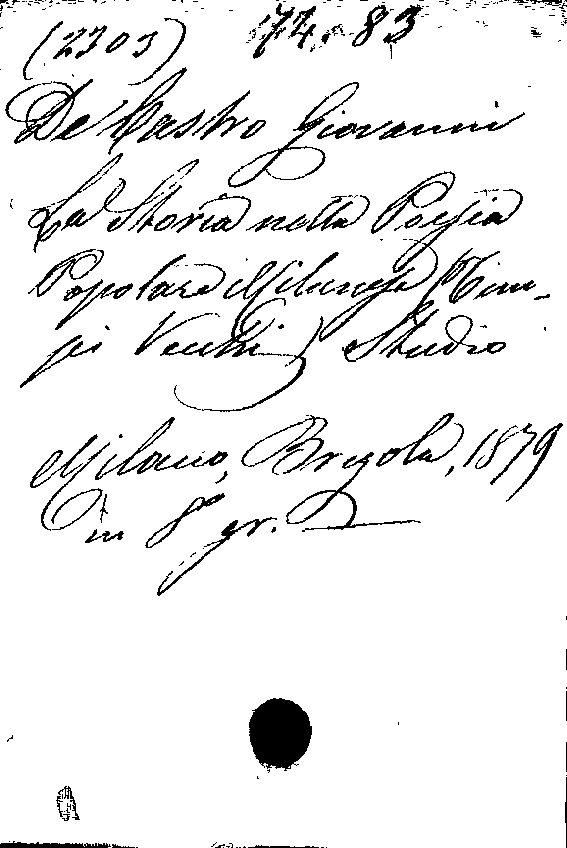 (2303) 74. 83
De Castro Giovanni
La Storia nella Poesia
Popolare Milanese (Tem-
pi Vecchi) Studio
Milano, Brigola, 1879
in 8° gr.